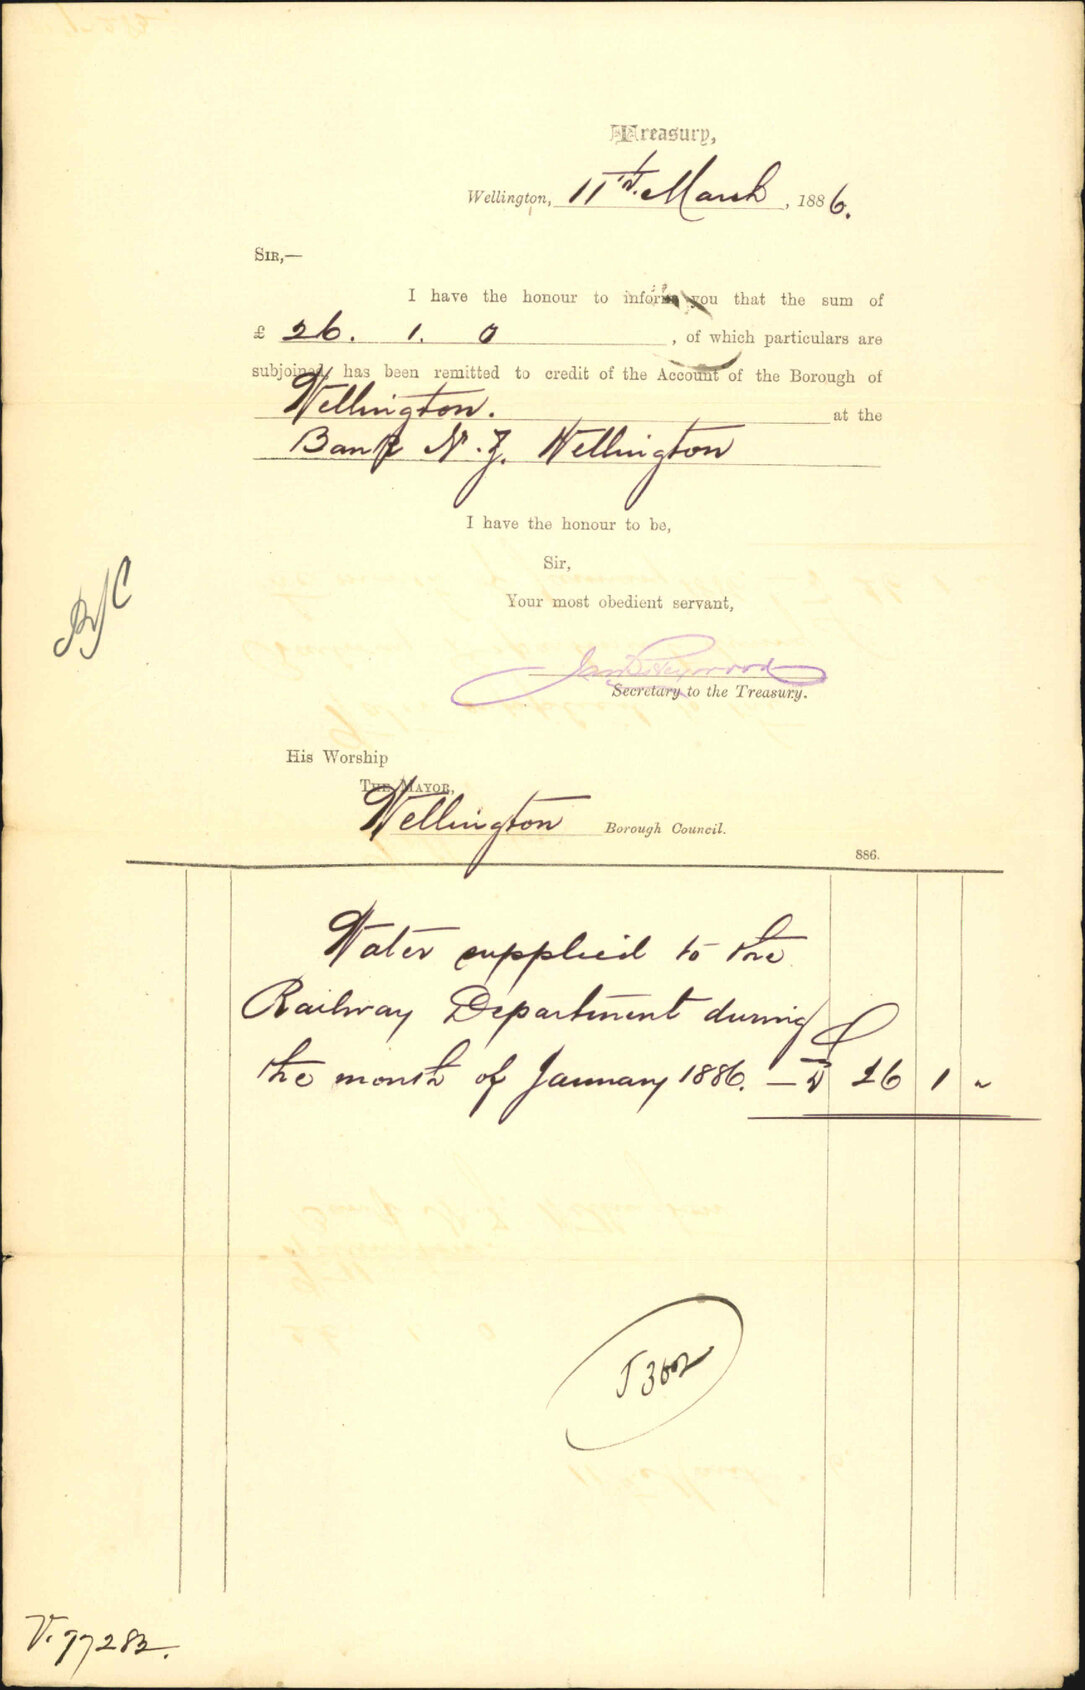 Treasury,
Wellington, 11th. March, 1886.
SIR,—
I have the honour to inform you that the sum of
£ 26. 1. 0, of which particulars are
subjoined, has been remitted to credit of the Account of the Borough of
Wellington. at the
Bank N.Z. Wellington
I have the honour to be,
Sir,
Your most obedient servant,
Heywood
Secretary to the Treasury.
His Worship
THE MAYOR,
Wellington Borough Council.
886.
Water supplied to the
Railway Department during
the month of January 1886. — £ 26 1 "
V. 97282.